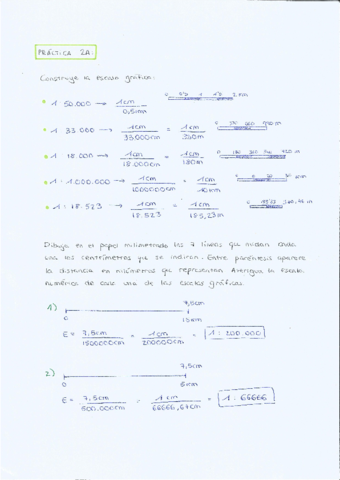 PRÁCTICA 2A.
Construye la escala gráfica:
* 1:50.000 → 1cm / 0,5km
* 1:33.000 → 1cm / 33.000cm = 1cm / 330m
* 1:18.000 → 1cm / 18.000cm = 1cm / 180m
* 1:1.000.000 → 1cm / 1000000cm = 1cm / 10km
* 1:18.523 → 1cm / 18.523 = 1cm / 185,23m
Dibuja en el papel milimetrado las 7 líneas que midan cada
una los centímetros que se indican. Entre paréntesis aparece
la distancia en kilómetros que representan. Averigua la escala
numérica de cada una de las escalas gráficas.
1)
7,5cm
0
15km
E = 7,5cm / 1500000cm = 1cm / 200000cm = 1:200.000
2)
7,5cm
0
5km
E = 7,5cm / 500.000cm = 1cm / 66666,67cm = 1:66666